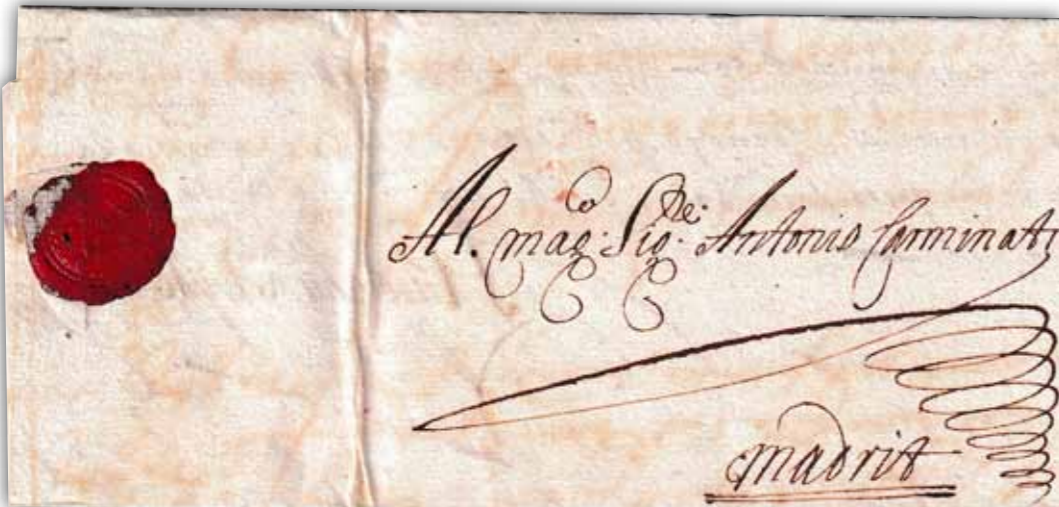 Al. mag.co Sig.re Antonio Carminaty
madrit